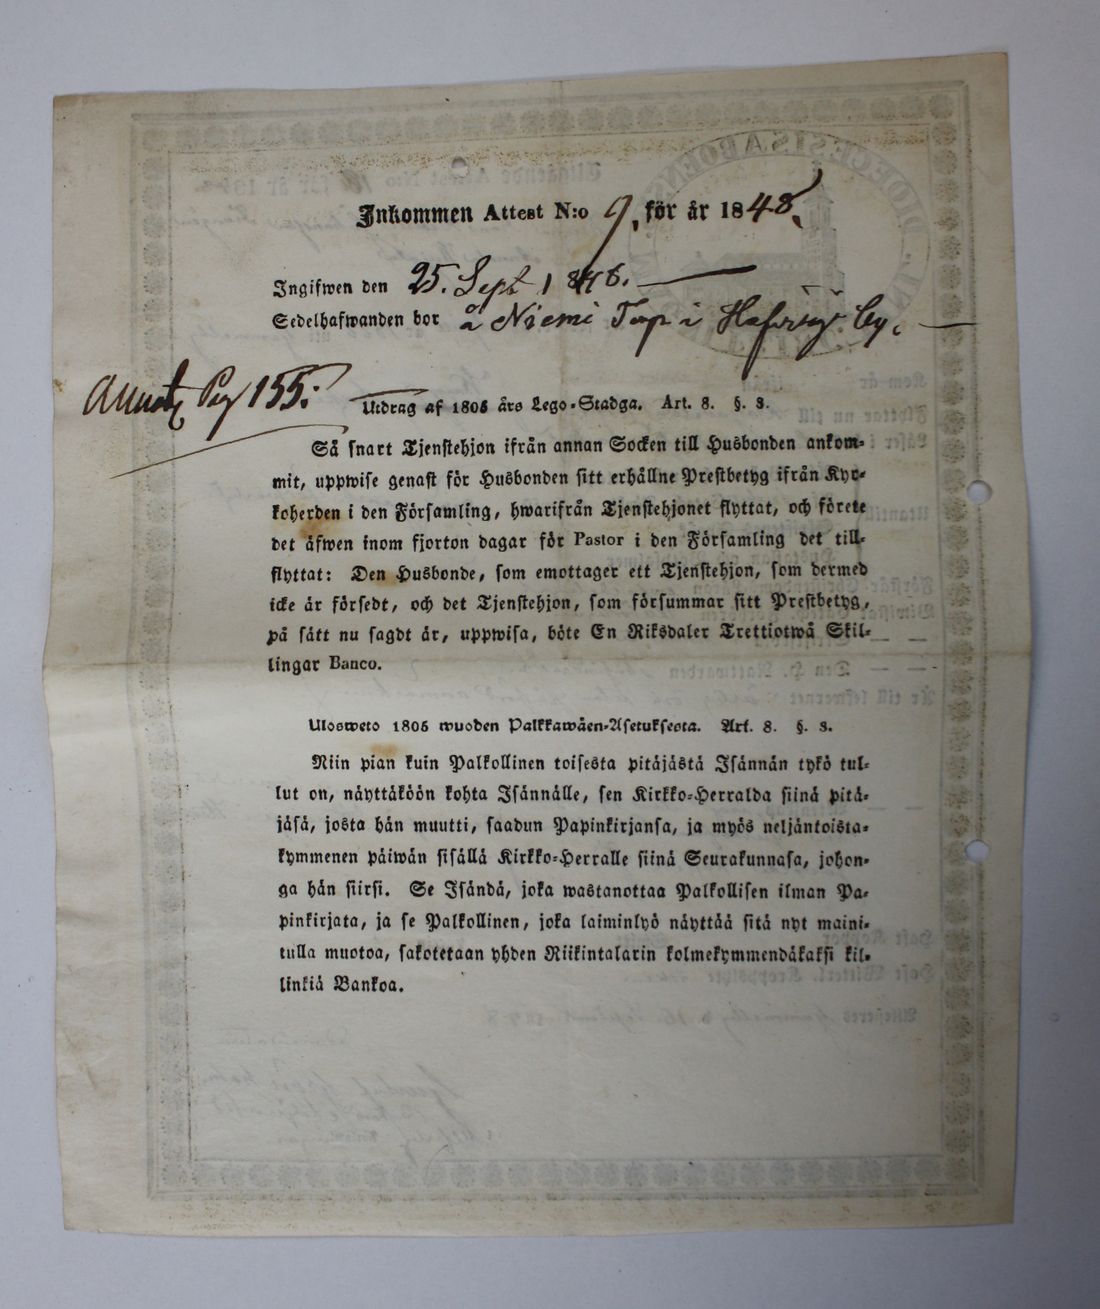 Inkommen Attest N:o 9, för år 1848,
Ingifwen den 25. Sept 1848.
Sedelhafwanden bor å Niemi Torp i by.
Annot. Pag 155:
Utdrag af 1805 års Lego-Stadga. Art. 8. §. 3.
Så snart Tjenstehjon ifrån annan Socken till Husbonden ankom-
mit, uppwise genast för Husbonden sitt erhållne Prestbetyg ifrån Kyr-
koherden i den Församling, hwarifrån Tjenstehjonet flyttat, och förete
det äfwen inom fjorton dagar för Pastor i den Församling det till-
flyttat: Den Husbonde, som emottager ett Tjenstehjon, som dermed
icke är försedt, och det Tjenstehjon, som försummar sitt Prestbetyg,
på sätt nu sagdt är, uppwisa, böte En Riksdaler Trettiotwå Skil-
lingar Banco.
Ulosweto 1805 wuoden Palkkawäen-Asetuksesta. Art. 8. §. 3.
Niin pian kuin Palkollinen toisesta pitäjästä Isännän tykö tul-
lut on, näyttäköön kohta Isännälle, sen Kirkko-Herralda siinä pitä-
jäsä, josta hän muutti, saadun Papinkirjansa, ja myös neljäntoista-
kymmenen päiwän sisällä Kirkko-Herralle siinä Seurakunnasa, johon-
ga hän siirsi. Se Isändä, joka wastanottaa Palkollisen ilman Pa-
pinkirjata, ja se Palkollinen, joka laiminlyö näyttää sitä nyt maini-
tulla muotoa, sakotetaan yhden Riikintalarin kolmekymmendäkaksi kil-
linkiä Bankoa.